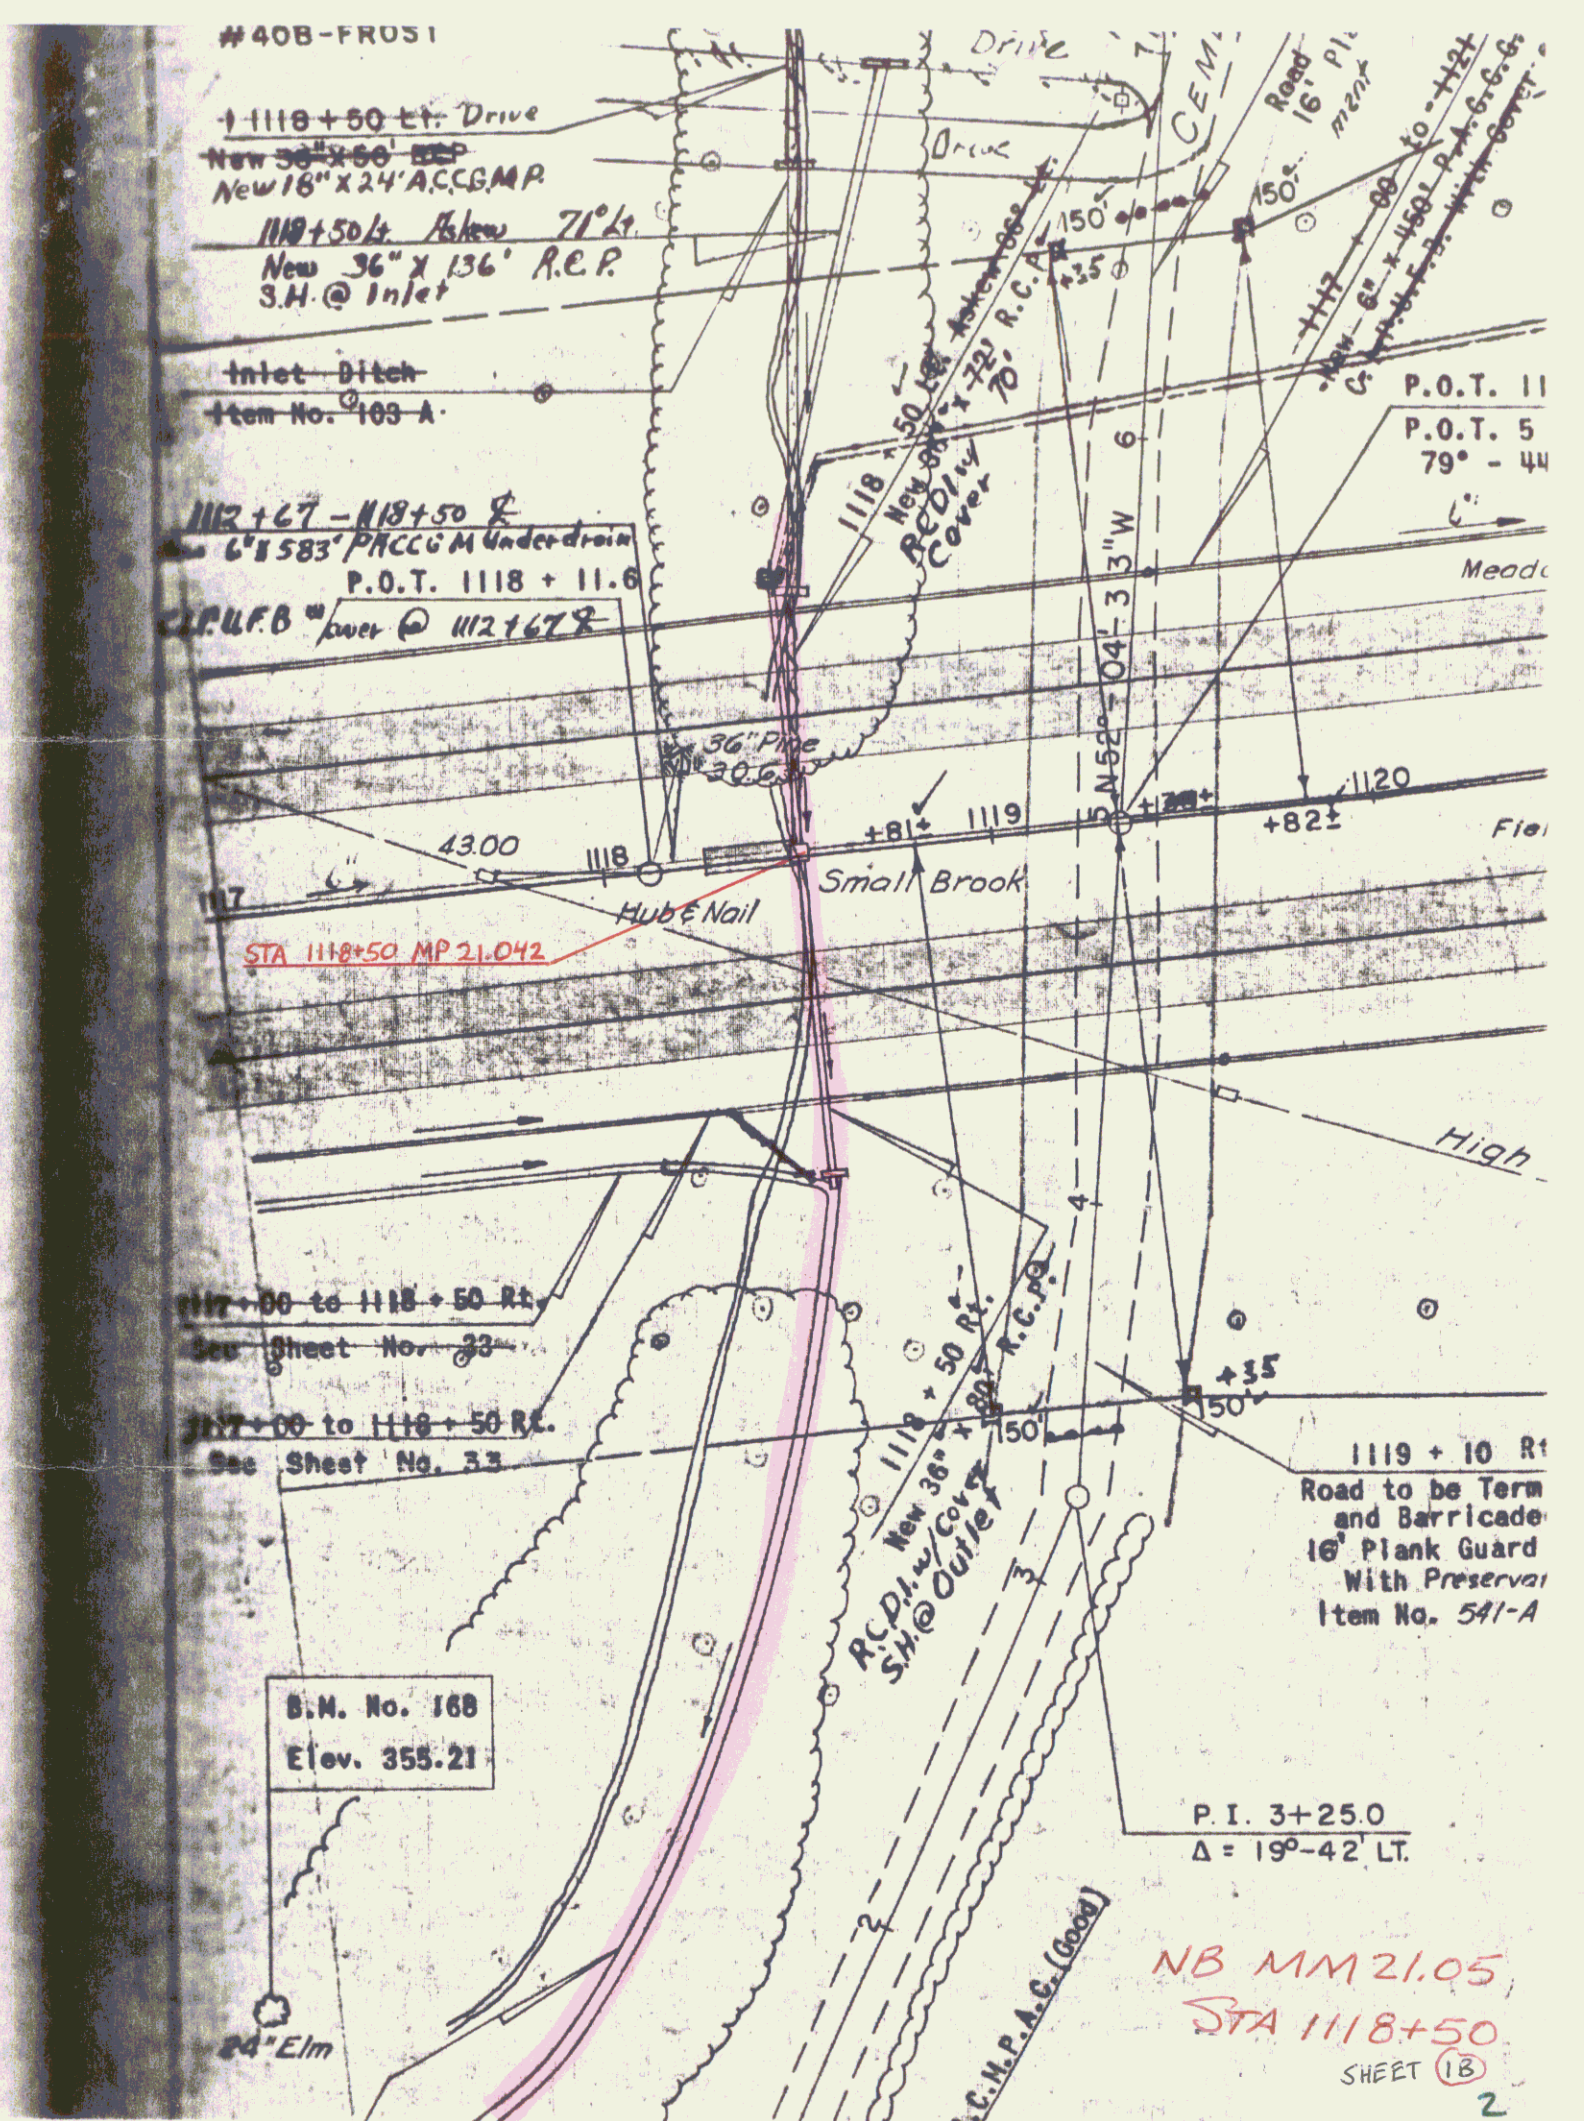 #40B-FROST
1118+50 Lt. Drive
New 36" X 50' RCP
New 18" X 24' A.C.C.G.M.P.
1118+50 Lt. Askew 71° Lt.
New 36" X 136' R.C.P.
S.H. @ Inlet
Inlet Ditch
Item No. 103 A
1112+67 - 1118+50 ℄
6" X 583' PACCGM Underdrain
P.O.T. 1118 + 11.6
C.I.P.U.F.B w/cover @ 1112+67 ℄
Drive
Drive
CEM.
Road
16' Pl
ment
150'
150'
+35
1117 + 00 to 1121
New 6" X 450' P.A.C.C.G.
C.I.P.U.F.B. With Cover
P.O.T. 11
P.O.T. 5
79° - 44
6"
Meado
1118 + 50 Lt. Askew
72' R.C.P.
70'
RCDI w/
Cover
7
6
5
N 52° - 04' - 33" W
36" Pine
20.6
43.00
6"
1117
1118
+81±
1119
+82±
1120
Small Brook
Hub & Nail
Fiel
STA 1118+50 MP 21.042
High
4
1117+00 to 1118 + 50 Rt.
See Sheet No. 33
1117+00 to 1118 + 50 Rt.
See Sheet No. 33
1118 + 50 Rt.
New 36" X 80' R.C.P.
R.C.D.I. w/Cover
S.H. @ Outlet
150'
+35
150'
1119 + 10 Rt
Road to be Term
and Barricade
16' Plank Guard
With Preservat
Item No. 541-A
3
B.M. No. 168
Elev. 355.21
P.I. 3+25.0
Δ = 19°-42' LT.
2
24" Elm
C.M.P.A.C. (Good)
NB MM 21.05
STA 1118+50
SHEET 1B
2